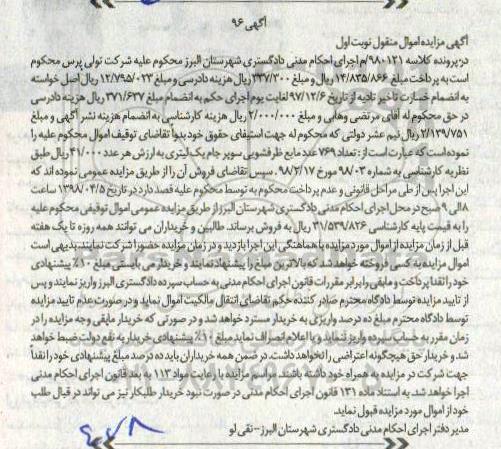 آگهی ۹۶
آگهی مزایده اموال منقول نوبت اول
در پرونده کلاسه ۹۸۰۱۲۱/م اجرای احکام مدنی دادگستری شهرستان البرز محکوم علیه شرکت تولی پرس محکوم
است به پرداخت مبلغ ۱۴/۸۳۵/۸۶۶ ریال و مبلغ ۳۳۷/۳۰۰ ریال هزینه دادرسی و مبلغ ۱۲/۷۹۵/۰۲۳ ریال اصل خواسته
به انضمام خسارت تاخیر تادیه از تاریخ ۹۷/۱۲/۶ لغایت یوم اجرای حکم به انضمام مبلغ ۳۷۱/۶۳۷ ریال هزینه دادرسی
در حق محکوم له آقای مرتضی وهابی و مبلغ ۲/۰۰۰/۰۰۰ ریال هزینه کارشناسی به انضمام هزینه نشر آگهی و مبلغ
۲/۱۳۹/۷۵۱ ریال نیم عشر دولتی که محکوم له جهت استیفای حقوق خود بدوا تقاضای توقیف اموال محکوم علیه را
نموده است که عبارت است از: تعداد ۷۶۹ عدد مایع ظرفشویی سوپر جام یک لیتری به ارزش هر عدد ۴۱/۰۰۰ ریال طبق
نظریه کارشناسی به شماره ۹۸۰۳ مورخ ۹۸/۲/۱۷. سپس تقاضای فروش آن را از طریق مزایده عمومی نموده اند که
این اجرا پس از طی مراحل قانونی و عدم پرداخت محکوم به توسط محکوم علیه قصد دارد در تاریخ ۱۳۹۸/۰۴/۵ ساعت
۸ الی ۹ صبح در محل اجرای احکام مدنی دادگستری شهرستان البرز از طریق مزایده عمومی اموال توقیفی محکوم علیه
را به قیمت پایه کارشناسی ۳۱/۵۳۹/۸۲۶ ریال به فروش برساند. طالبین و خریداران می توانند همه روزه تا یک هفته
قبل از زمان مزایده از اموال مورد مزایده با هماهنگی این اجرا بازدید و در زمان مزایده حضورا شرکت نمایند. بدیهی است
اموال مزایده به کسی فروخته خواهد شد که بالاترین مبلغ را پیشنهاد نمایند و خریدار می بایستی مبلغ ۱۰٪ پیشنهادی
خود را نقدا پرداخت و مابقی را برابر مقررات قانون اجرای احکام مدنی به حساب سپرده دادگستری البرز واریز نمایند و پس
از تایید مزایده توسط دادگاه محترم صادر کننده حکم تقاضای انتقال مالکیت اموال نماید و در صورت عدم تایید مزایده
توسط دادگاه محترم مبلغ ده درصد واریزی به خریدار مسترد خواهد شد و در صورتی که خریدار مابقی وجه مزایده را در
زمان مقرر به حساب سپرده واریز ننماید و یا اعلام انصراف نماید مبلغ ۱۰٪ پیشنهادی خریدار به نفع دولت ضبط خواهد
شد و خریدار حق هیچگونه اعتراضی را نخواهد داشت. در ضمن همه خریداران باید ده درصد مبلغ پیشنهادی خود را نقدا
جهت شرکت در مزایده به همراه خود داشته باشند. مراسم مزایده با رعایت مواد ۱۱۳ به بعد قانون اجرای احکام مدنی
اجرا خواهد شد. به استناد ماده ۱۳۱ قانون اجرای احکام مدنی در صورت نبود خریدار طلبکار نیز می تواند در قبال طلب
خود از اموال مورد مزایده قبول نماید.
مدیر دفتر اجرای احکام مدنی دادگستری شهرستان البرز - تقی لو